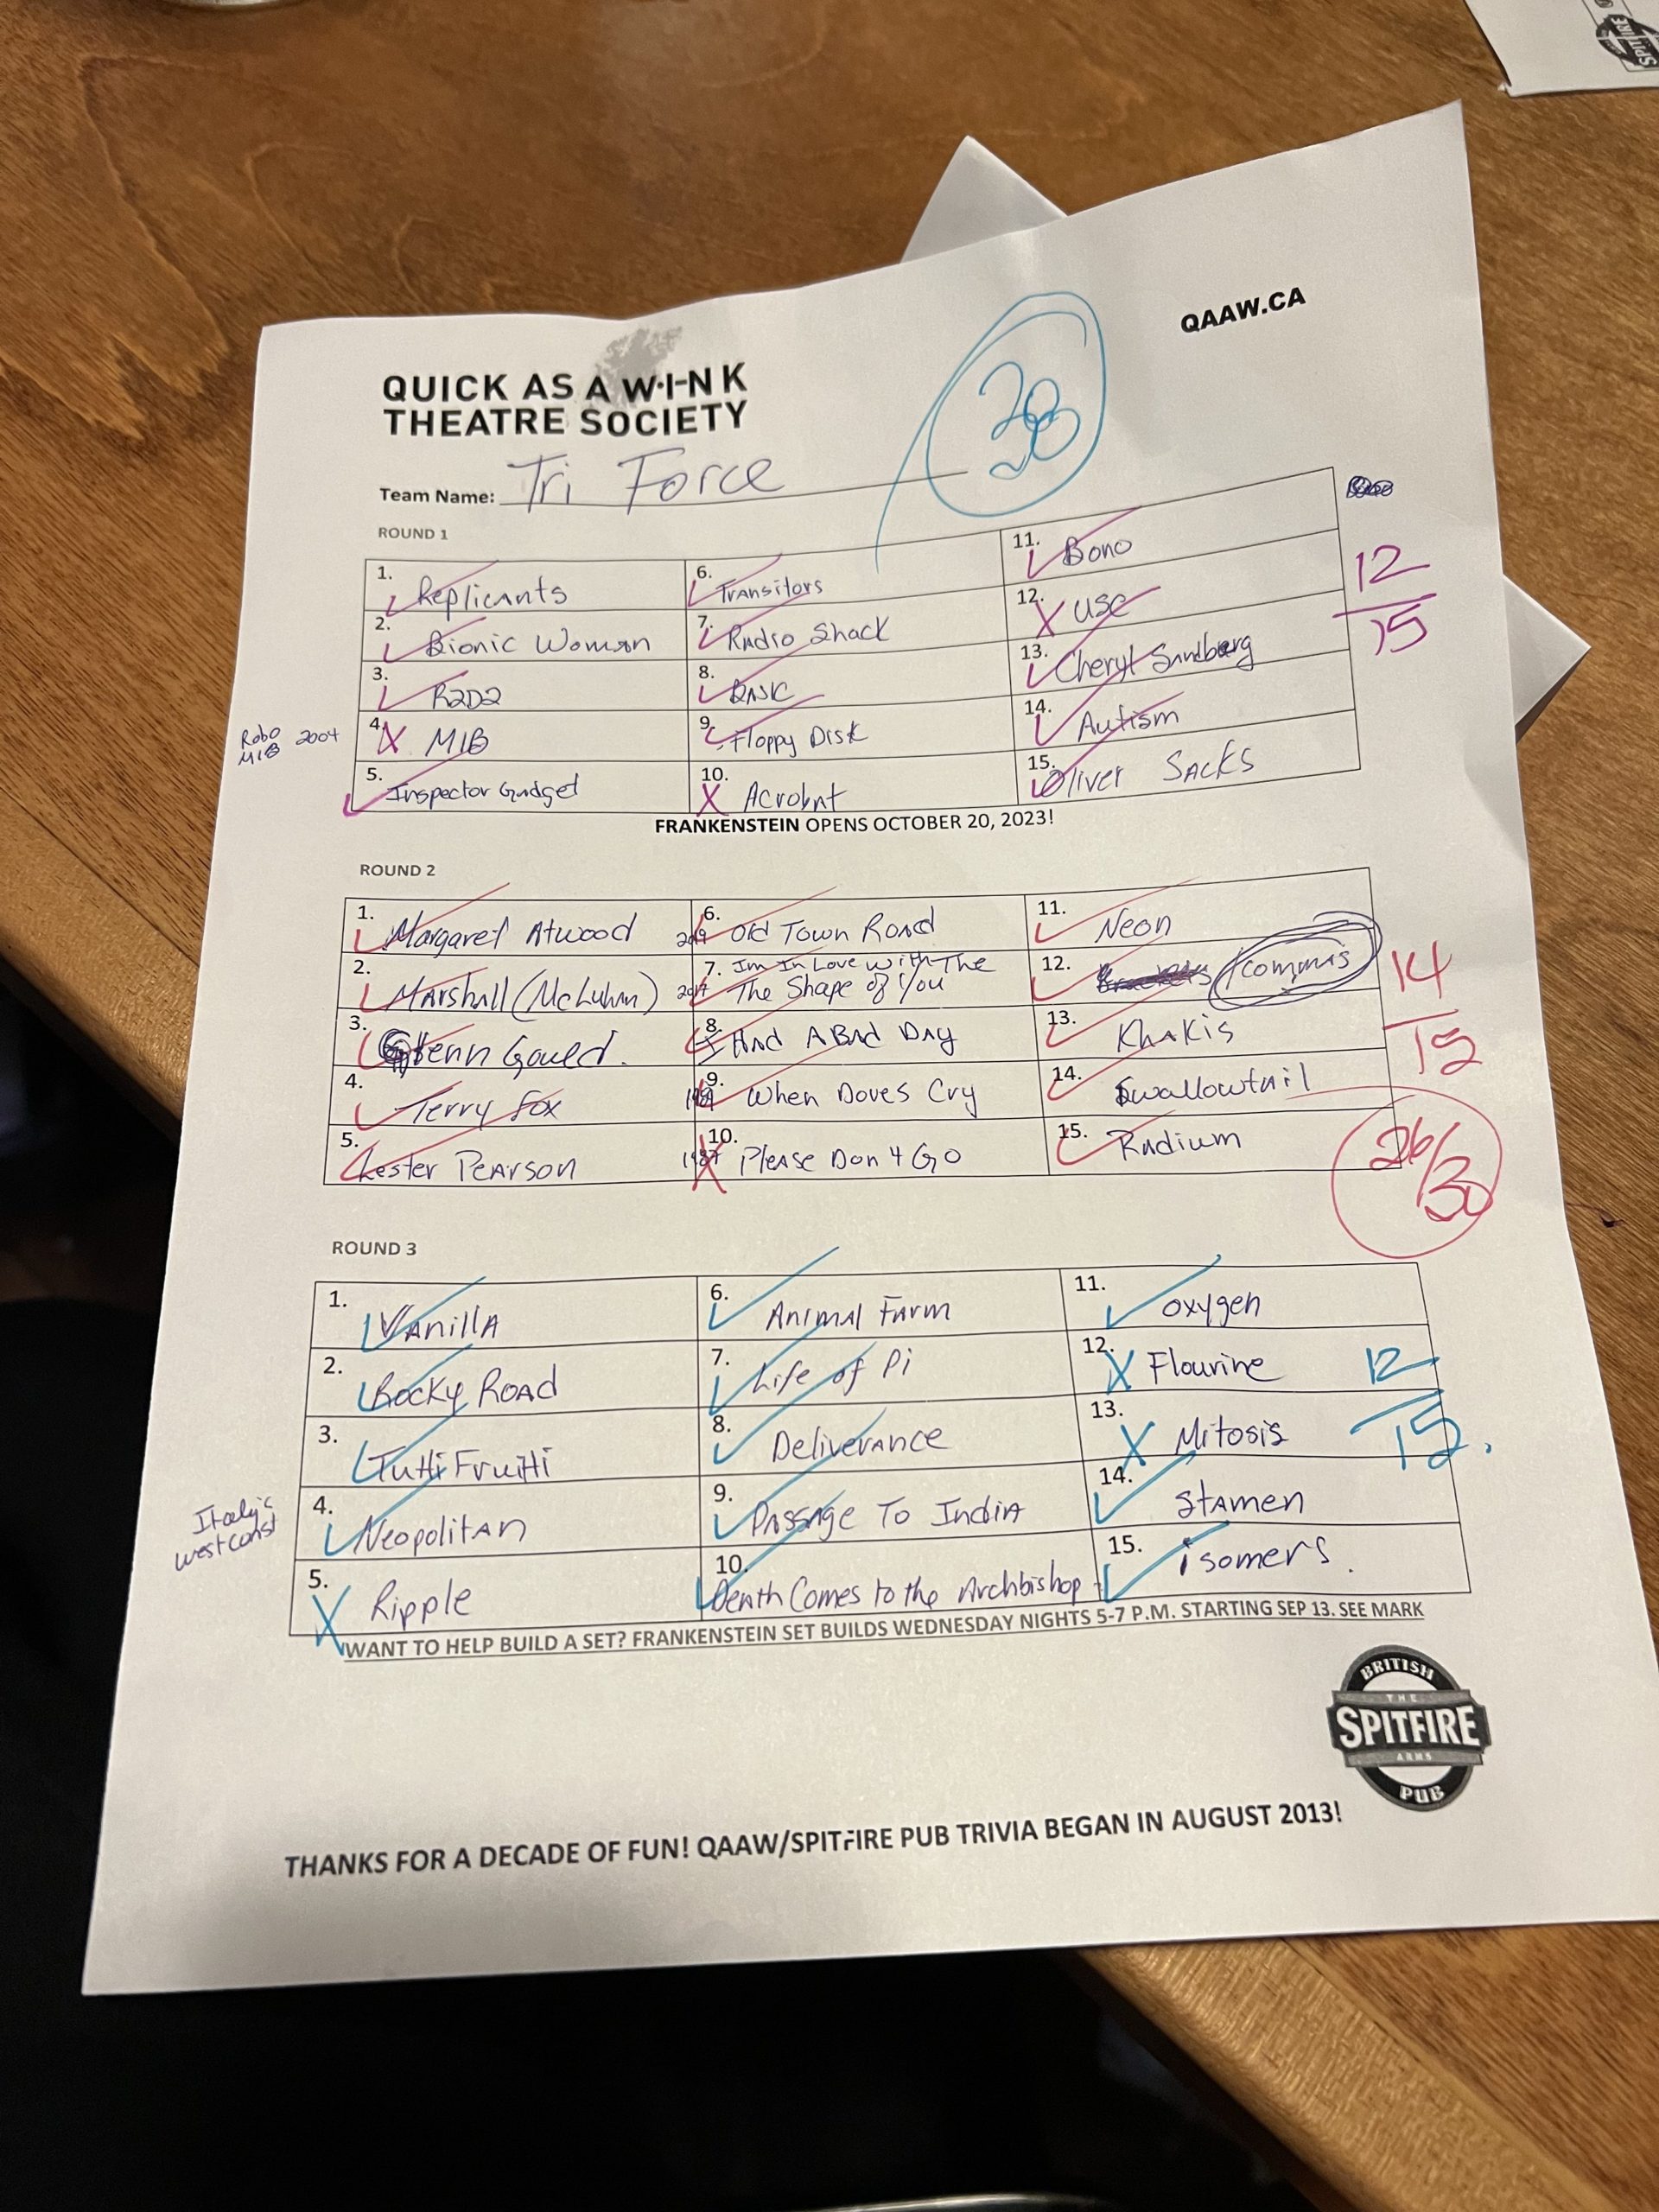 SPITFIRE
QAAW.CA
QUICK AS A W·I·N K
THEATRE SOCIETY
38
Team Name: Tri Force
ROUND 1
1. Replicants
2. Bionic Woman
3. R2D2
4. MIB
Robo 2004
MIB
5. Inspector Gadget
6. Transitors
7. Radio Shack
8. BASIC
9. Floppy Disk
10. Acrobat
11. Bono
12. USC
13. Cheryl Sandberg
14. Autism
15. Oliver Sacks
12
15
FRANKENSTEIN OPENS OCTOBER 20, 2023!
ROUND 2
1. Margaret Atwood
2. Marshall (McLuhan)
3. Glenn Gould.
4. Terry Fox
5. Lester Pearson
6. Old Town Road
2019
7. Im In Love with The
2017 The Shape of You
8. I Had A Bad Day
9. When Doves Cry
10. Please Don 4 Go
11. Neon
12. commas
13. Khakis
14. Swallowtail
15. Radium
14
15
26/30
ROUND 3
1. Vanilla
2. Rocky Road
3. Tutti Fruitti
4. Neopolitan
Italy's
west coast
5. Ripple
6. Animal Farm
7. Life of Pi
8. Deliverance
9. Passage To India
10. Death Comes to the Archbishop
11. oxygen
12. Flourine
13. Mitosis
14. Stamen
15. isomers.
12
15.
WANT TO HELP BUILD A SET? FRANKENSTEIN SET BUILDS WEDNESDAY NIGHTS 5-7 P.M. STARTING SEP 13. SEE MARK
BRITISH
THE
SPITFIRE
ARMS
PUB
THANKS FOR A DECADE OF FUN! QAAW/SPITFIRE PUB TRIVIA BEGAN IN AUGUST 2013!